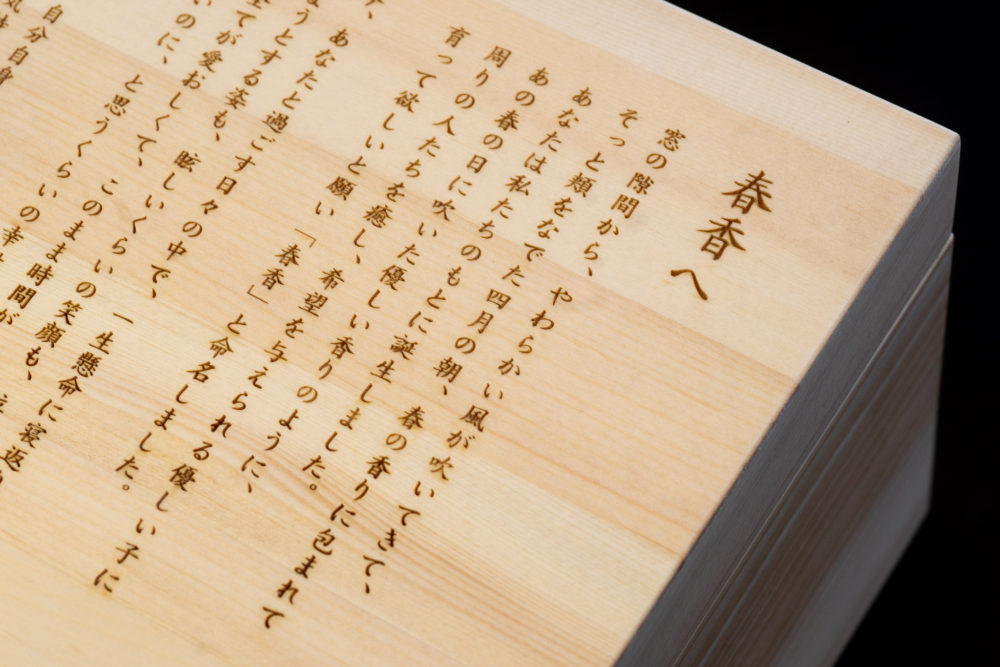 春香へ
窓の隙間から、やわらかい風が吹いてきて、
そっと頬をなでた四月の朝、春の香りに包まれて
あなたは私たちのもとに誕生しました。
あの春の日に吹いた優しい香りのように、
周りの人たちを癒し、希望を与えられる優しい子に
育って欲しいと願い「春香」と命名しました。
あなたと過ごす日々の中で、一生懸命に寝返り
ようとする姿も、眩しいくらいの笑顔も、
全てが愛おしくて、このまま時間が
いのに、と思うくらいの幸
自分自身